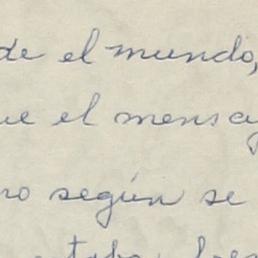 de el mundo,
ue el mensaj
no según se